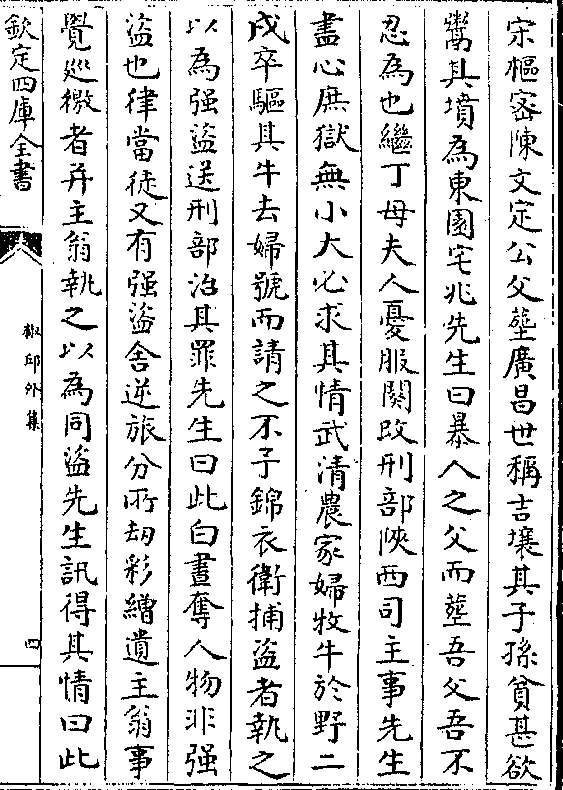 宋樞密陳文定公父塟廣昌世稱吉壤其子孫貧甚欲
鬻其墳為東園宅兆先生曰暴人之父而塟吾父吾不
忍為也繼丁母夫人憂服闋改刑部陝西司主事先生
盡心庶獄無小大必求其情武清農家婦牧牛於野二
戍卒驅其牛去婦號而請之不予錦衣衛捕盜者執之
以為强盜送刑部治其罪先生曰此白晝奪人物非强
盜也律當徒又有强盜舍逆旅分所劫彩繒遺主翁事
覺廵檄者并主翁執之以為同盜先生訊得其情曰此
欽定四庫全書
椒邱外集
四